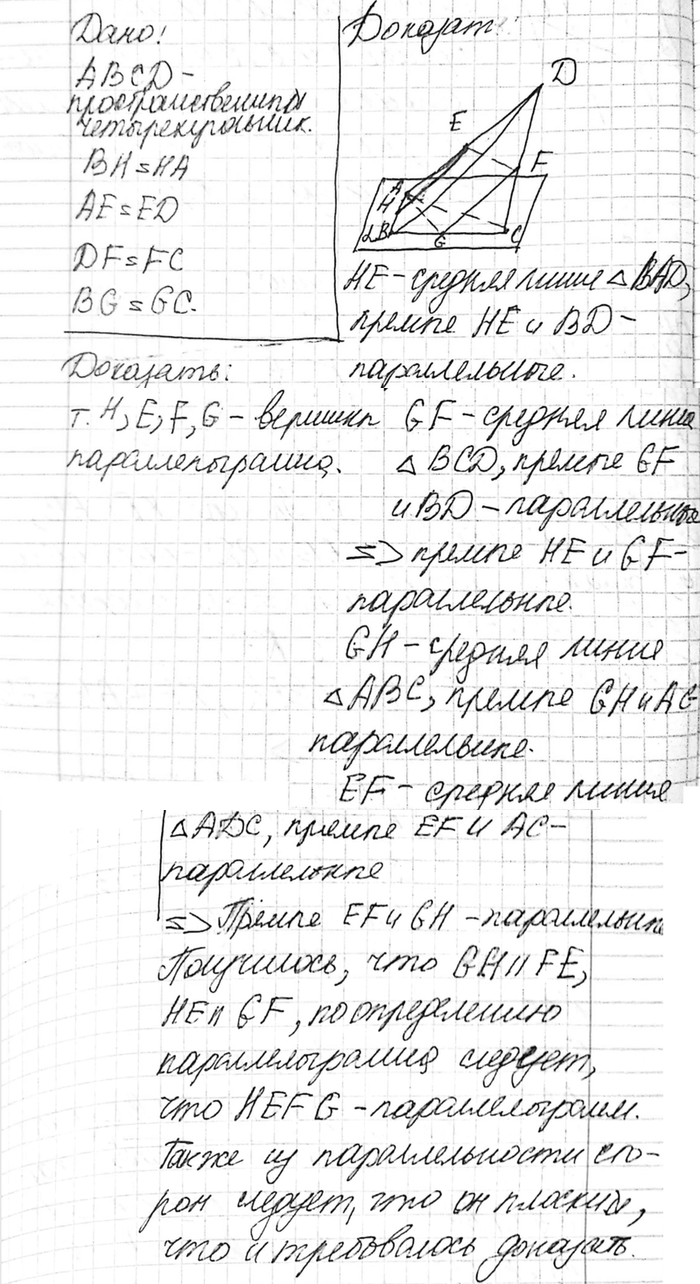 Дано:
ABCD -
пространственный
четырехугольник.
BH = HA
AE = ED
DF = FC
BG = GC.
Доказать:
т. H, E, F, G - вершины
параллелограмма.
Доказат
D
E
F
A
H
B
G
C
HE - средняя линия △ BAD,
прямые HE и BD -
параллельные.
GF - средняя линия
△ BCD, прямые GF
и BD - параллельные
=> прямые HE и GF -
параллельные.
GH - средняя линия
△ABC, прямые GH и AC
параллельные.
EF - средняя линия
△ADC, прямые EF и AC -
параллельные
=> Прямые EF и GH - параллельные
Получилось, что GH || FE,
HE || GF, по определению
параллелограмма следует,
что HEFG - параллелограмм.
Также из параллельности сто-
рон следует, что он плоский,
что и требовалось доказать.